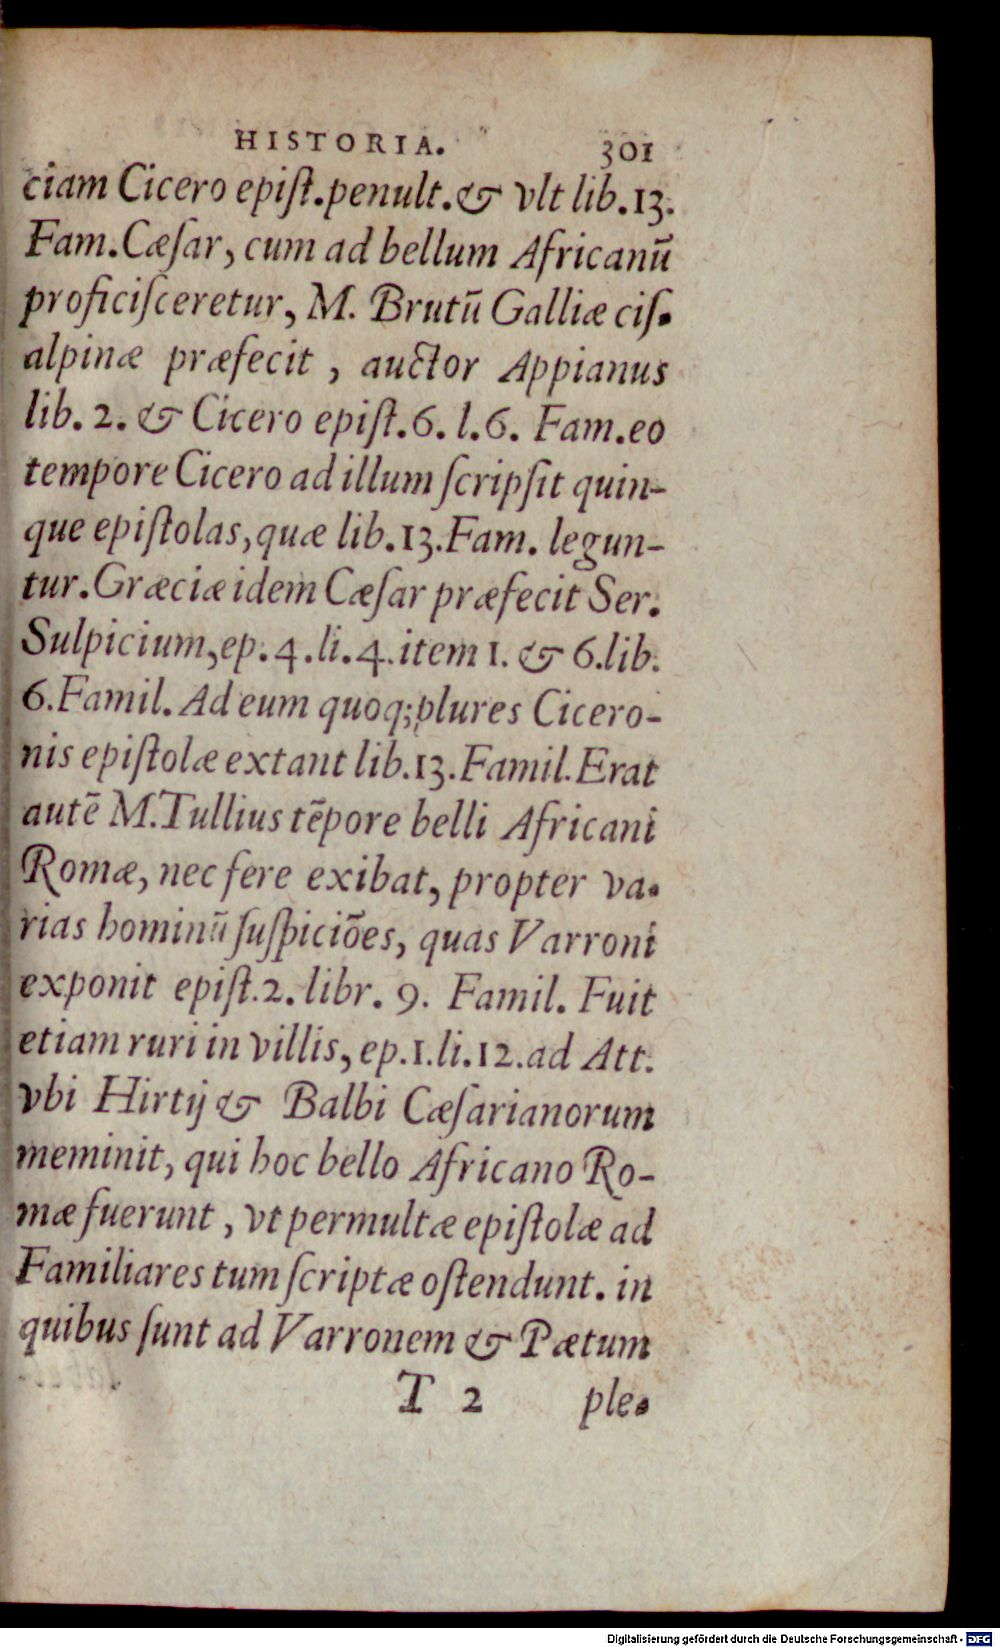 HISTORIA. 301
ciam Cicero epiſt.penult.& vlt lib.13.
Fam.Cæſar, cum ad bellum Africanū
proficiſceretur, M. Brutū Galliæ ciſ-
alpinæ præfecit , auctor Appianus
lib. 2. & Cicero epiſt.6. l.6. Fam.eo
tempore Cicero ad illum ſcripſit quin-
que epiſtolas, quæ lib.13.Fam. legun-
tur.Græciæ idem Cæſar præfecit Ser.
Sulpicium,ep.4.li.4.item 1. & 6.lib.
6.Famil. Ad eum quoq;plures Cicero-
nis epiſtolæ extant lib.13.Famil.Erat
autē M.Tullius tēpore belli Africani
Romæ, nec fere exibat, propter va-
rias hominū ſuſpiciōes, quas Varroni
exponit epiſt.2. libr. 9. Famil. Fuit
etiam ruri in villis, ep.1.li.12.ad Att.
vbi Hirtij & Balbi Cæſarianorum
meminit, qui hoc bello Africano Ro-
mæ fuerunt , vt permultæ epiſtolæ ad
Familiares tum ſcriptæ oſtendunt. in
quibus ſunt ad Varronem & Pætum
T 2 ple-
Digitalisierung gefördert durch die Deutsche Forschungsgemeinschaft - DFG